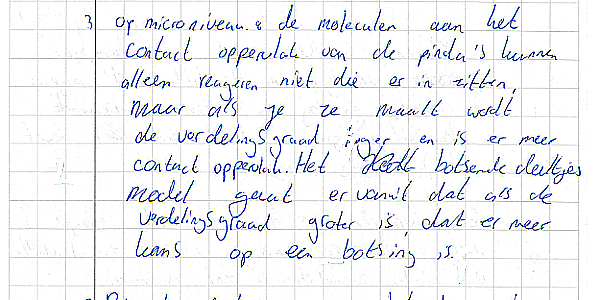 3 op microniveau. : de moleculen aan het
contact oppervlak van de pinda's kunnen
alleen reageren niet die er in zitten,
maar als je ze maalt wordt
de verdelingsgraad en is er meer
contact oppervlak. Het botsende deeltjes
model gaat er vanuit dat als de
verdelingsgraad groter is, dat er meer
kans op een botsing is.